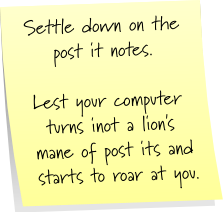 Settle down on the
post it notes.
Lest your computer
turns inot a lion's
mane of post its and
starts to roar at you.